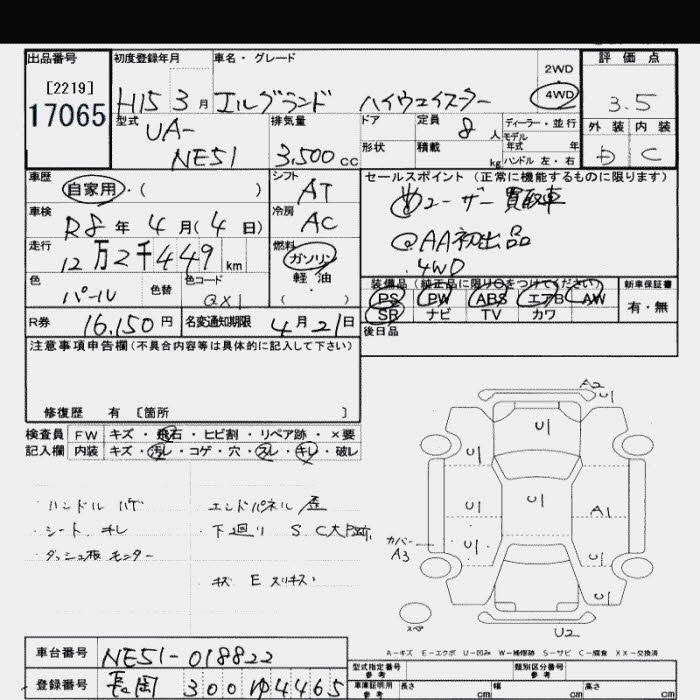 出品番号 初度登録年月 車名・グレード 評価点
[2219]
17065
H15 3月 エルグランド ハイウェイスター 2WD 4WD 3.5
型式 排気量 ドア 定員 8人 ディーラー・並行 外装 内装
UA-
NE51 3,500cc 形状 積載 kg モデル年式 年 D C
ハンドル 左・右
車歴 シフト セールスポイント (正常に機能するものに限ります)
自家用・( ) AT ユーザー買取車
車検 冷房
R8年4月(4日) AC AA初出品
走行 燃料
12万2千449km ガソリン 4WD
軽油・( )
色 色替 色コード 装備品(純正品に限り○をつけてください) 新車保証書
パール QX1 PS PW ABS エアB AW 有・無
SR ナビ TV カワ
R券 16,150円 名変通知期限 4月21日 後日品
注意事項申告欄(不具合内容等は具体的に記入して下さい)
修復歴 有 〔箇所 〕
検査員 FW キズ・飛石・ヒビ割・リペア跡・×要
記入欄 内装 キズ・汚レ・コゲ・穴・スレ・キレ・破レ
ハンドル ハゲ エンドパネル歪
シート キレ 下廻り S C大
ダッシュ板 モニター
キズ E スリキズ
A2 U1
U1
U1
U1 U1 A1
U1 U1
カバー A3
スペア
U1
U2
A-キズ E-エクボ U-凹み W-補修跡 S-サビ C-腐食 XX-交換済
車台番号 NE51-018822
型式指定番号 参考 類別区分番号 参考
登録番号 長岡 300 ゆ4465
車庫証明用 参考 長さ cm 幅 cm 高さ cm